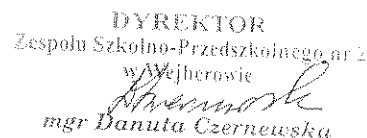 DYREKTOR
Zespołu Szkolno-Przedszkolnego nr 2
w Wejherowie
mgr Danuta Czernewska